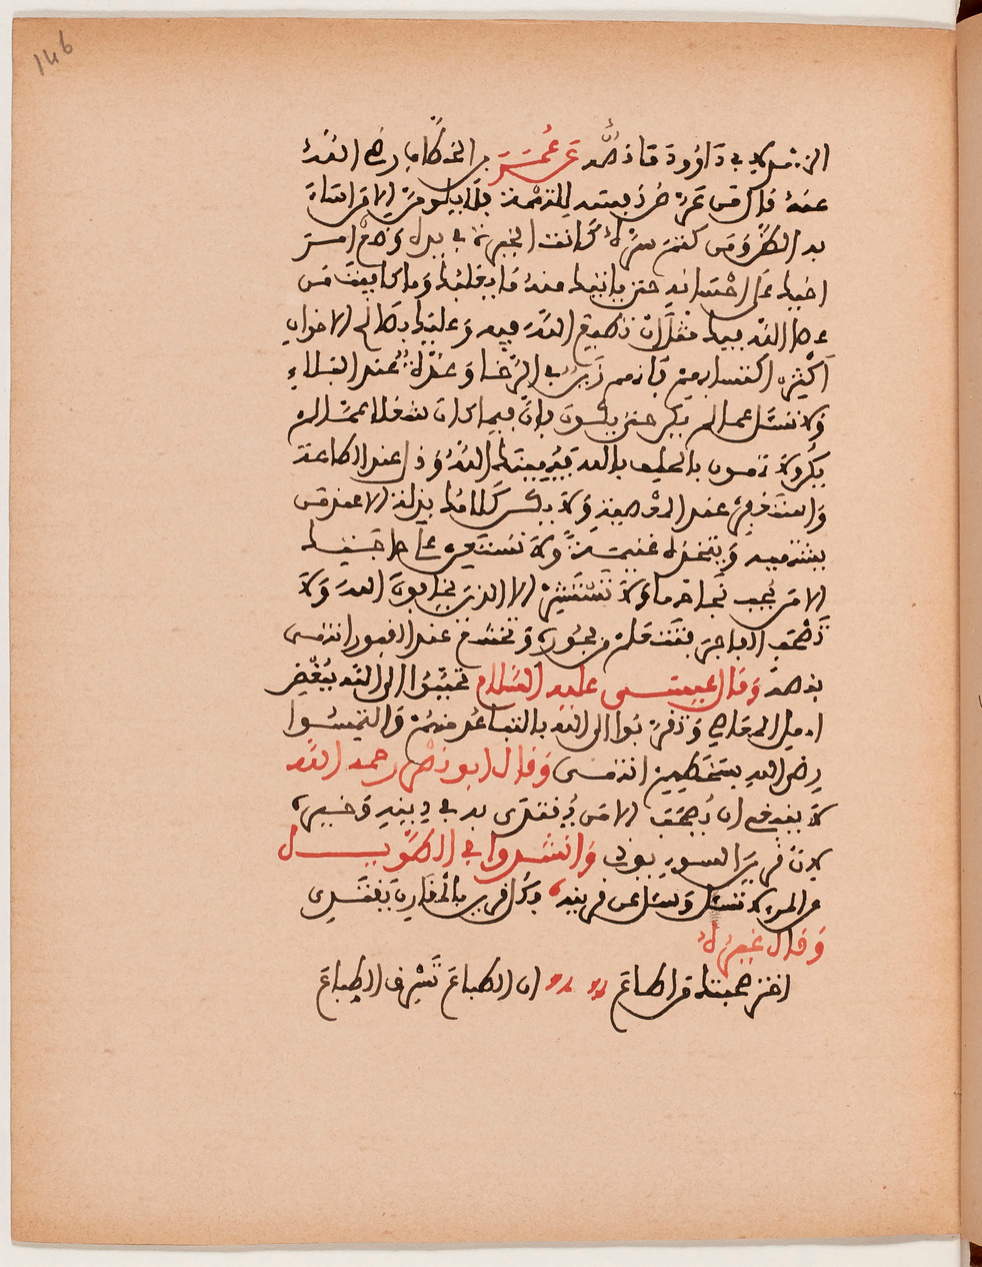 146
الترمذي وأبي داوود ما نصه عن عمر بن الخطاب رضي الله
عنه قال من عرض نفسه للتهمة فلا يلومن إلا من أساء
به الظن ومن كتم سره كانت الخيرة في يده وضع أمر
أخيك على أحسنه حتى يأتيك منه ما يغلبك وما كافيت من
عصا الله فيك مثل أن تطيع الله فيه وعليك بصالح الإخوان
أكثر اكتسابهم فإنهم زين في الرخا وعدة عند البلاء
ولا تسئل عما لم يكن حتى يكون فإن فيما كان شغلا عما لم
يكن ولا تهون بالحلف بالله فيهينك الله وذل عند الطاعة
واستغفر عند المعصية ولا يكن كلامك بذلة إلا عند من
يشتهيه ويتخذه غنيمة ولا تستعن على حاجتك
إلا من يحب نجاحها ولا تستشر إلا الذين يخافون الله ولا
تصحب الفاجر فتتعلم من فجوره وتخشع عند القبور انتهى
بنصه وقال عيسى عليه السلام تحببوا إلى الله ببغض
أهل المعاصي وتقربوا إلى الله بالتباعد منهم والتمسوا
رضى الله بسخطهم انتهى وقال أبو نصر رحمه الله
لا ينبغي أن يصحب إلا من يقتدى به في دينه وخيره
لأن قرين السوء يودي وأنشدوا في الطويل
عن المرء لا تسئل وسئل عن قرينه فكل قرين بالمقارن يقتدي
وقال غيره
احذر صحبتك من أطاع إن الطباع تسرق الطباع